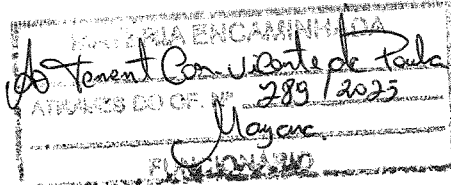 MATÉRIA ENCAMINHADA
Ao Tenent Con Vicente de Paula
ATRAVÉS DO OF. Nº 289 / 2025
Mayara
FUNCIONÁRIO